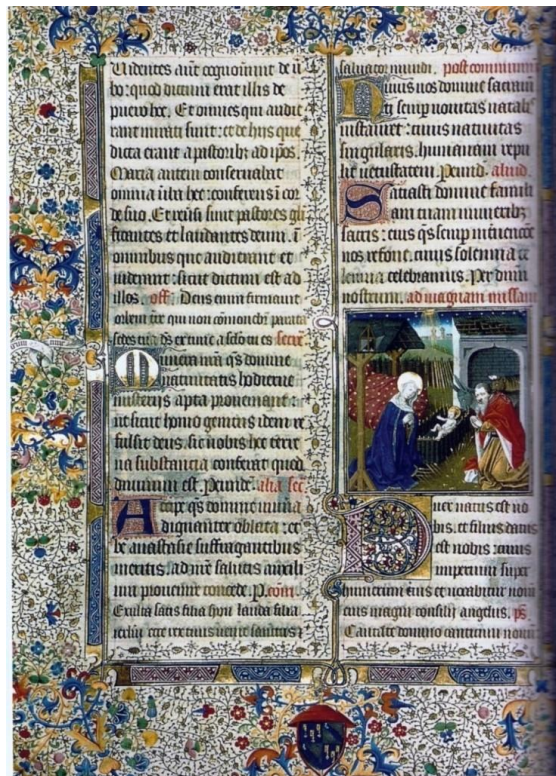 Videntes aut cognouerunt de v̄
bo: quod dictum erat illis de
puero hoc. Et omnes qui audie
rant mirati sunt: et de hys que
dicta erant a pastorib; ad ipos.
Maria autem conseruabat
omnia ūba hec: conferens ī cor
de suo. Et reūsi sunt pastores glī
ficantes et laudantes deum. ī
omnibus que audierant et
uiderant: sicut dictum est ad
illos. off. Deus enim firmauit
orbem tr̄e qui non cōmoueb; parata
sedes tua d̄s ex tunc a sclo tu es secr̄
Munera nr̄a q̄s domine
natiuitatis hodierne
misterijs apta proueniant:
ut sicut homo genitus idem re
fulsit deus. sic nobis hec terre
na substantia conferat quod
diuinum est. P eund. alia sec̄.
Accipe q̄s domine mune
ra dignanter oblata: et
be anastasie suffragantibus
meritis. ad nr̄e salutis auxili
um prouenire concede. P. cōm.
Exulta satis filia syon lauda filia
ierlm ecce rex tuus uenit sanctus ⁊
saluator mundi. post communion
Huius nos domine sacram̄
ti semp nouitas natal
instauret: cuius natiuitas
singularis. humanam repu
lit uetustatem. P eund. aliud.
Satiasti domine famili
am tuam muneribz
sacris: eius q̄s semp interuencōe
nos refoue. cuius solemnia ce
celebramus. Per dnm
nostrum. ad magnam missam
Puer natus est no
bis. et filius datus
est nobis: cuius
imperium super
humerum eius et uocabitur nom̄
eius magni consilij angelus. p̄s.
Cantate domino canticum nouū